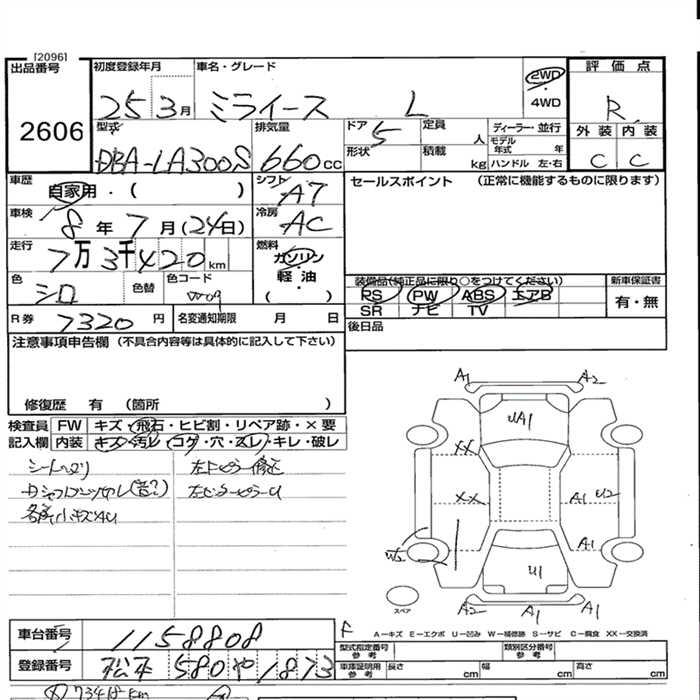 [2096]
出品番号
2606
初度登録年月 車名・グレード
25 3月 ミライース L
2WD
4WD
評価点
R
外装 内装
C C
型式 排気量 ドア 定員 ディーラー・並行
DBA-LA300S 660cc 5 人 モデル年式 年
形状 積載 kg ハンドル 左・右
車歴 自家用・( ) シフト AT
車検 8年 7月(24日) 冷房 AC
走行 7万3千420km 燃料 ガソリン・軽油
( )
色 シロ 色替 色コード W09
R券 7320円 名変通知期限 月 日
セールスポイント (正常に機能するものに限ります)
装備品(純正品に限り○をつけてください) 新車保証書
PS PW ABS エアB 有・無
SR ナビ TV
後日品
注意事項申告欄 (不具合内容等は具体的に記入して下さい)
修復歴 有 (箇所 )
検査員 FW キズ・飛石・ヒビ割・リペア跡・×要
記入欄 内装 キズ・汚レ・コゲ・穴・スレ・キレ・破レ
各所小キズAU
A1 A2
UA1
XX
XX A1 U2
A1
W2
U1
A2 A1 A1
スペア
F
A－キズ E－エクボ U－凹み W－補修跡 S－サビ C－腐食 XX－交換済
車台番号 1158808
登録番号 松本 580 や 1873
型式指定番号 参考 類別区分番号 参考
車庫証明用 参考 長さ cm 幅 cm 高さ cm